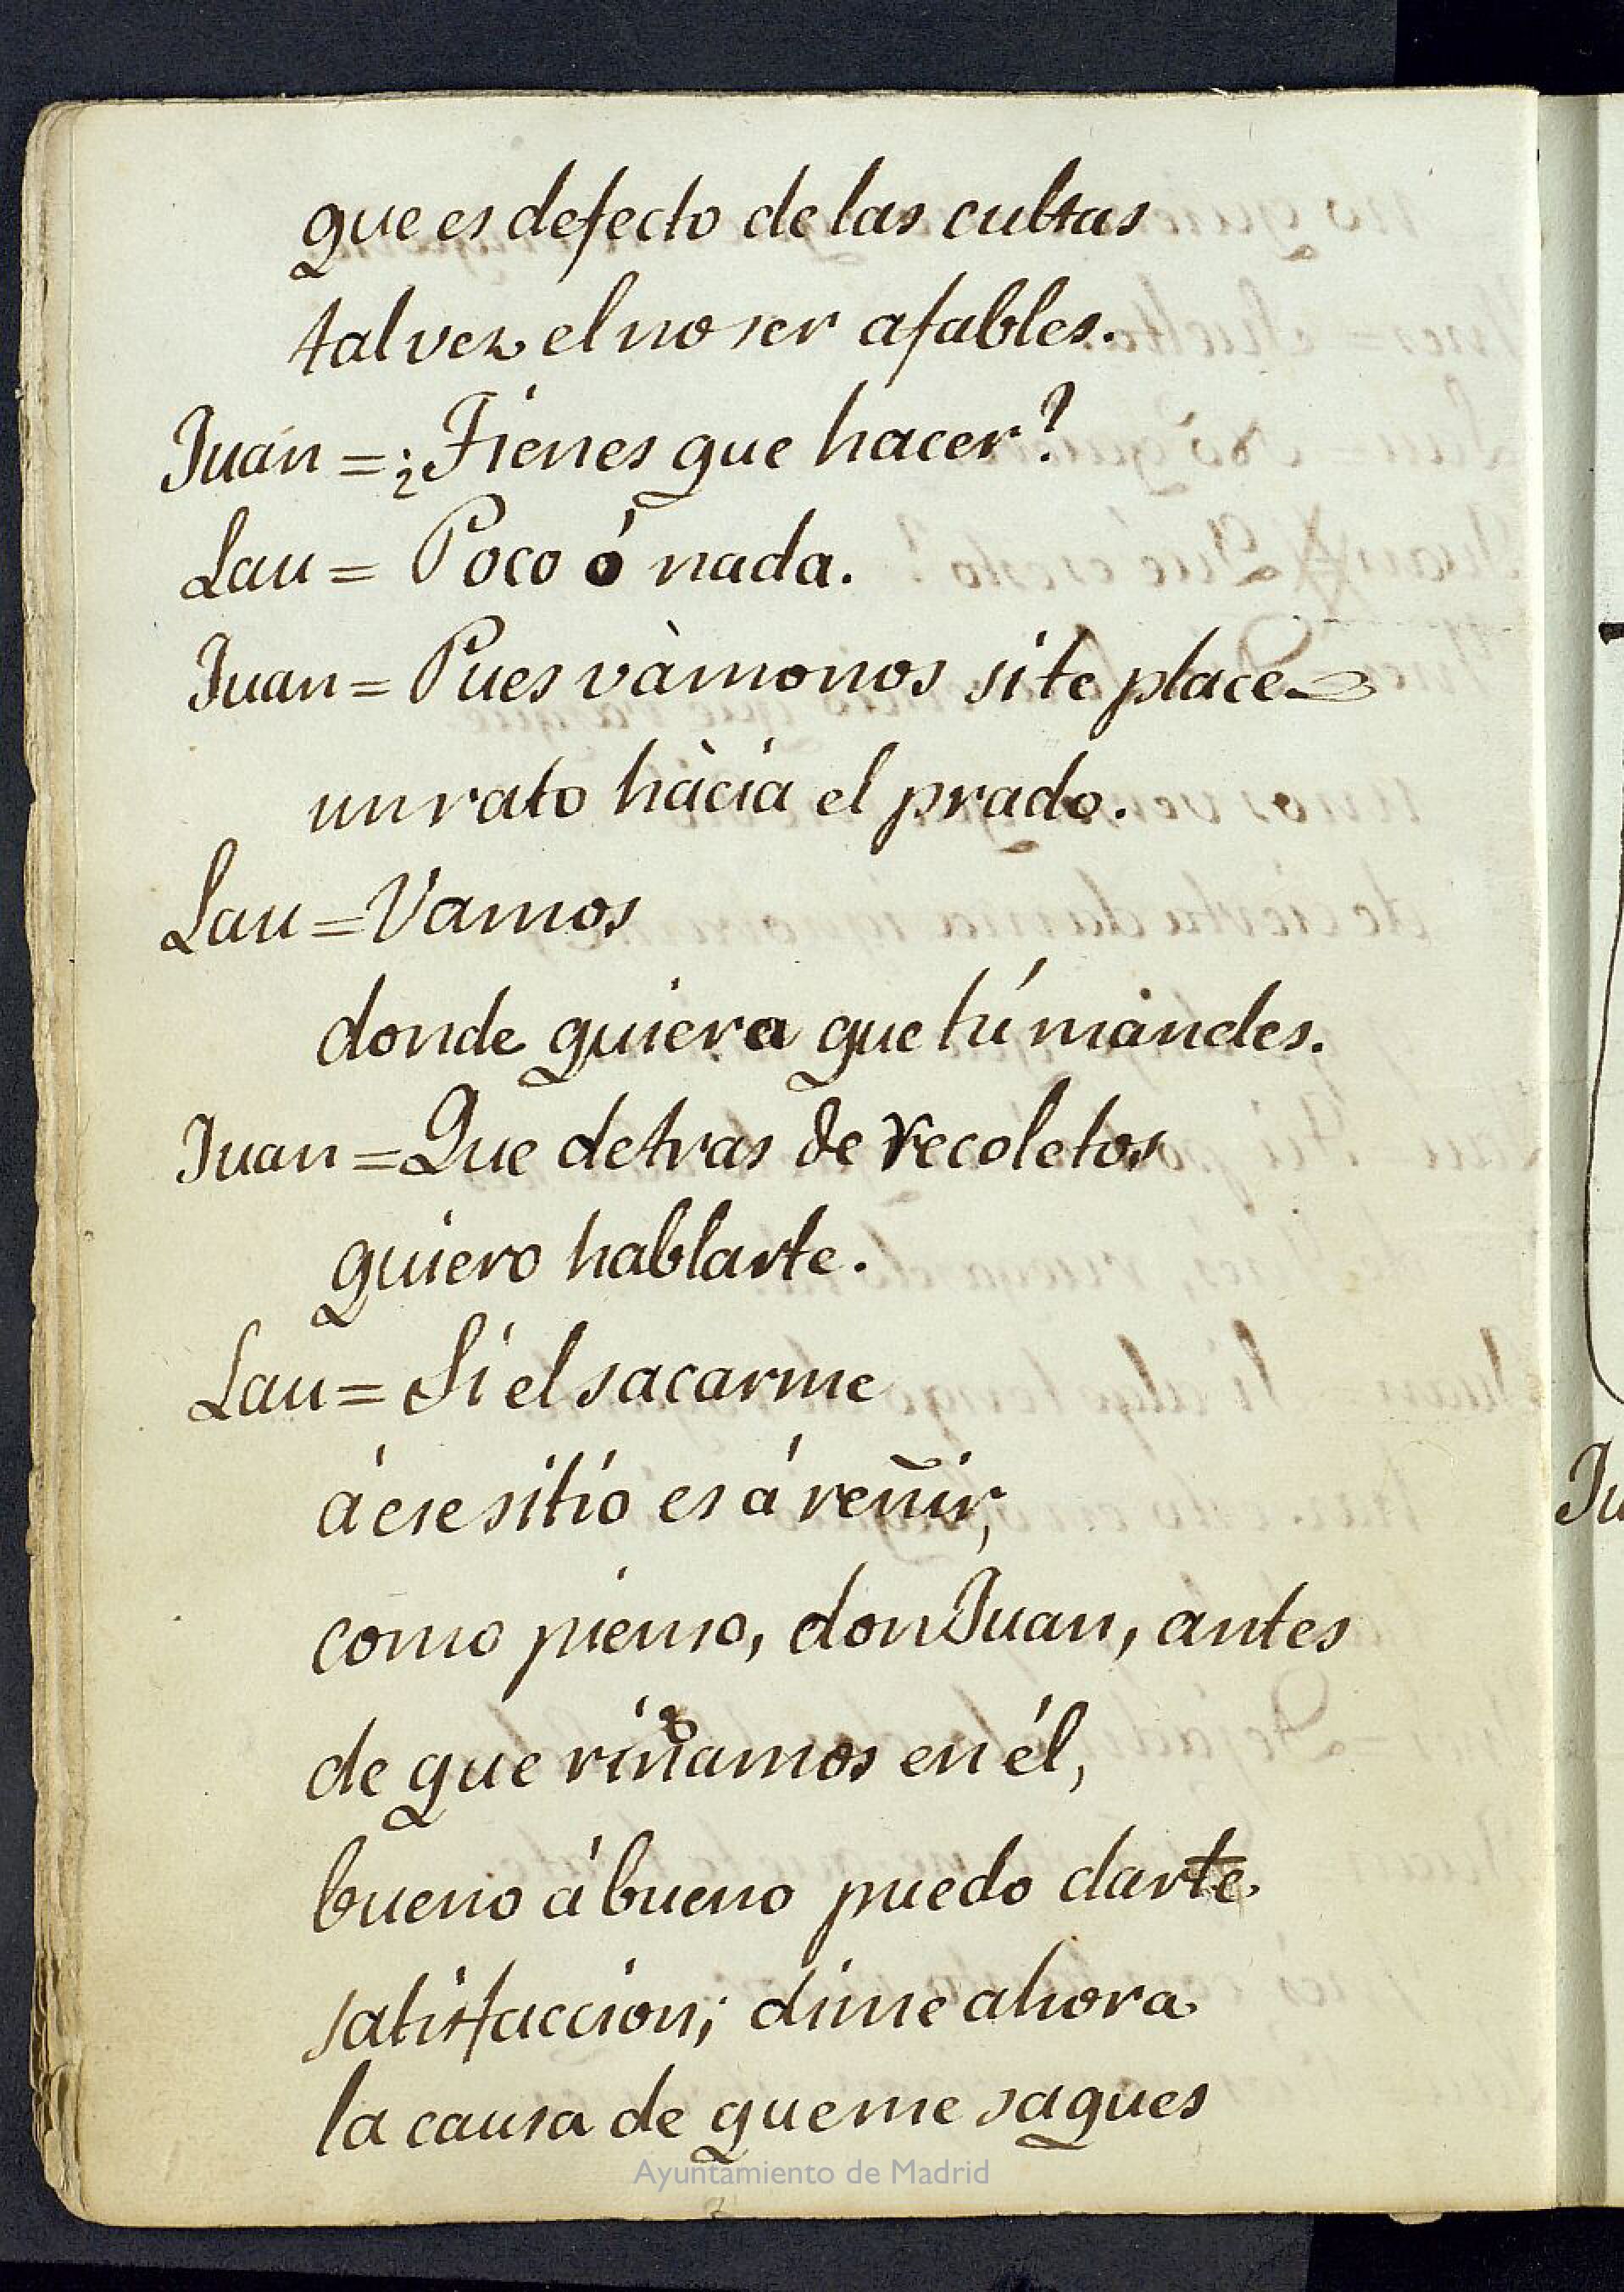 que es defecto de las cultas
tal vez el no ser afables.
Juan = ¿Tienes que hacer?
Lau = Poco ó nada.
Juan = Pues vàmonos si te place
un rato hàcia el prado.
Lau = Vamos
donde quiera que tú mandes.
Juan = Que detras de recoletos
quiero hablarte.
Lau = Si el sacarme
á ese sitio es á reñir,
como pienso, don Juan, antes
de que riñamos en él,
bueno á bueno puedo darte
satisfaccion; dime ahora
la causa de que me saques
Ayuntamiento de Madrid
Ju